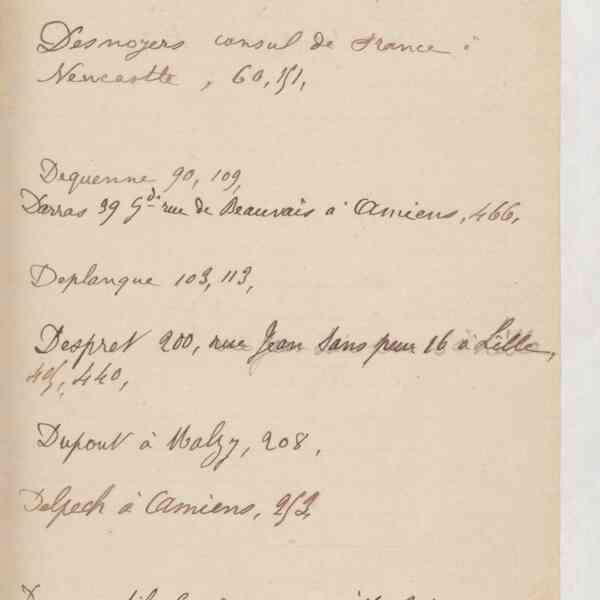 Desnoyers consul de France à
Newcastle, 60, 151,
Dequenne 90, 109,
Darras 39 Gde rue de Beauvais à Amiens, 466,
Deplanque 103, 113,
Despret 200, rue Jean Sans peur 16 à Lille,
405, 440,
Dupont à Malzy, 208,
Delpech à Amiens, 253,